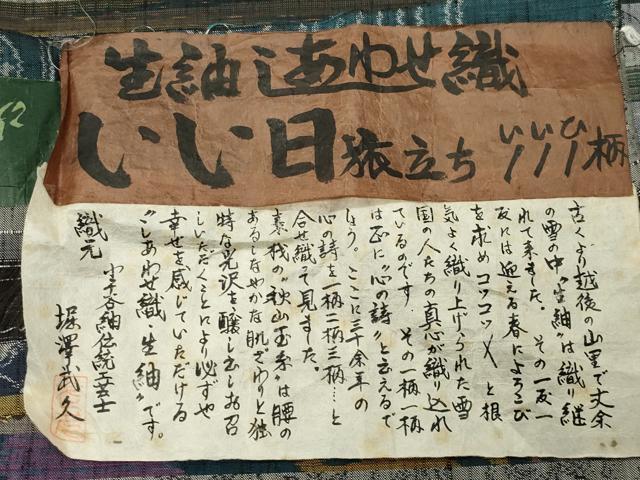 生紬しあわせ織
いい日旅立ち
いいひ
111柄
古くより越後の山里で丈余
の雪の中"生紬"は織り継が
れて来ました。その一反一
反には迎える春によろこび
を求めコツコツと根
気よく織り上げられた雪
国の人たちの真心が織り込れ
ているのです その一柄一柄
は正に"心の詩"と言えるで
しょう。ここに三十余年の
心の詩を一柄二柄三柄…と
合せ織って見ました。
素材の"秋山玉糸"は腰の
あるしなやかな肌ざわりと独
特な光沢を醸し出しお召
しいただくことにより必ずや
幸せを感じていただける
"しあわせ織・生紬"です。
織元
小千谷紬伝統工芸士
堀澤武久